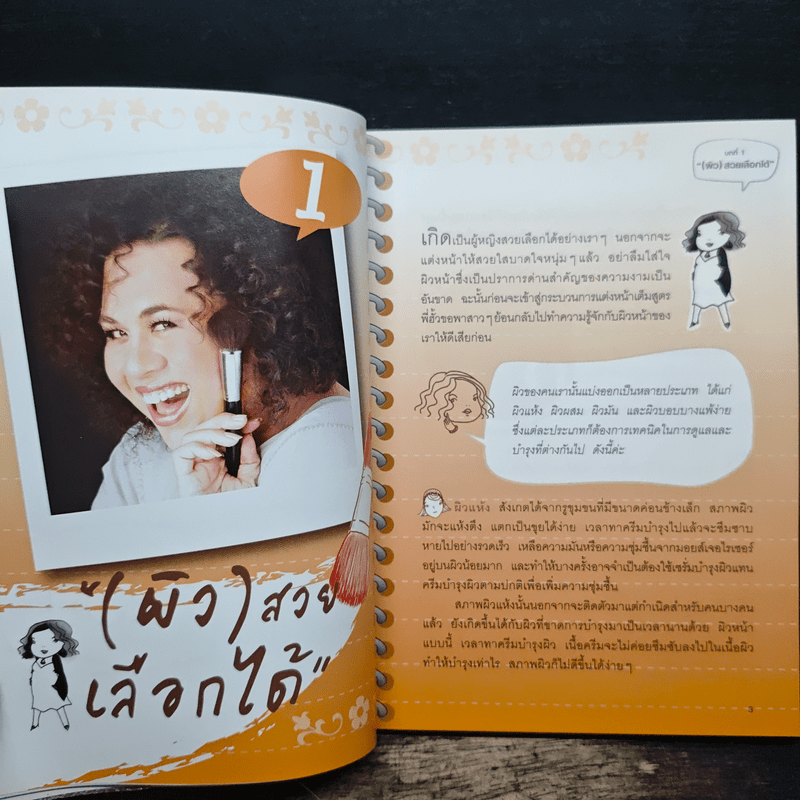 1
"(ผิว) สวย
เลือกได้"
บทที่ 1
"(ผิว) สวยเลือกได้"
เกิดเป็นผู้หญิงสวยเลือกได้อย่างเราๆ นอกจากจะ
แต่งหน้าให้สวยใสบาดใจหนุ่มๆแล้ว อย่าลืมใส่ใจ
ผิวหน้าซึ่งเป็นปราการด่านสำคัญของความงามเป็น
อันขาด ฉะนั้นก่อนจะเข้าสู่กระบวนการแต่งหน้าเต็มสูตร
พี่ฮั้วขอพาสาวๆย้อนกลับไปทำความรู้จักกับผิวหน้าของ
เราให้ดีเสียก่อน
ผิวของคนเรานั้นแบ่งออกเป็นหลายประเภท ได้แก่
ผิวแห้ง ผิวผสม ผิวมัน และผิวบอบบางแพ้ง่าย
ซึ่งแต่ละประเภทก็ต้องการเทคนิคในการดูแลและ
บำรุงที่ต่างกันไป ดังนี้ค่ะ
ผิวแห้ง สังเกตได้จากรูขุมขนที่มีขนาดค่อนข้างเล็ก สภาพผิว
มักจะแห้งตึง แตกเป็นขุยได้ง่าย เวลาทาครีมบำรุงไปแล้วจะซึมซาบ
หายไปอย่างรวดเร็ว เหลือความมันหรือความชุ่มชื้นจากมอยส์เจอไรเซอร์
อยู่บนผิวน้อยมาก และทำให้บางครั้งอาจจำเป็นต้องใช้เซรั่มบำรุงผิวแทน
ครีมบำรุงผิวตามปกติเพื่อเพิ่มความชุ่มชื้น
สภาพผิวแห้งนั้นนอกจากจะติดตัวมาแต่กำเนิดสำหรับคนบางคน
แล้ว ยังเกิดขึ้นได้กับผิวที่ขาดการบำรุงมาเป็นเวลานานด้วย ผิวหน้า
แบบนี้ เวลาทาครีมบำรุงผิว เนื้อครีมจะไม่ค่อยซึมซับลงไปในเนื้อผิว
ทำให้บำรุงเท่าไร สภาพผิวก็ไม่ดีขึ้นได้ง่ายๆ
3